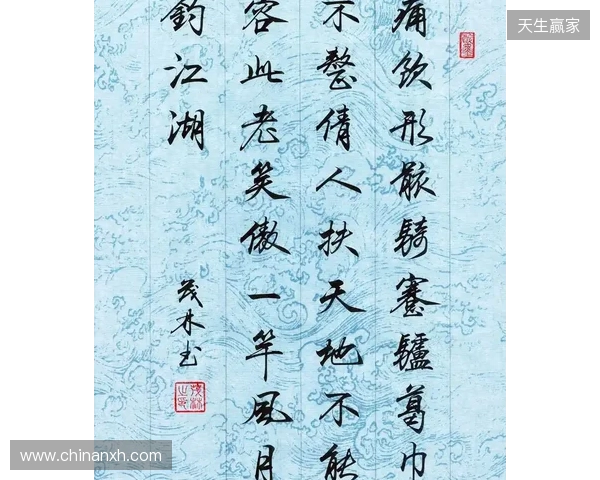 痛飲形骸騎蹇驢葛巾
不整倩人扶天地不能
容此老笑傲一竿風月
釣江湖
茂林书
天生赢家
www.chinanxh.com